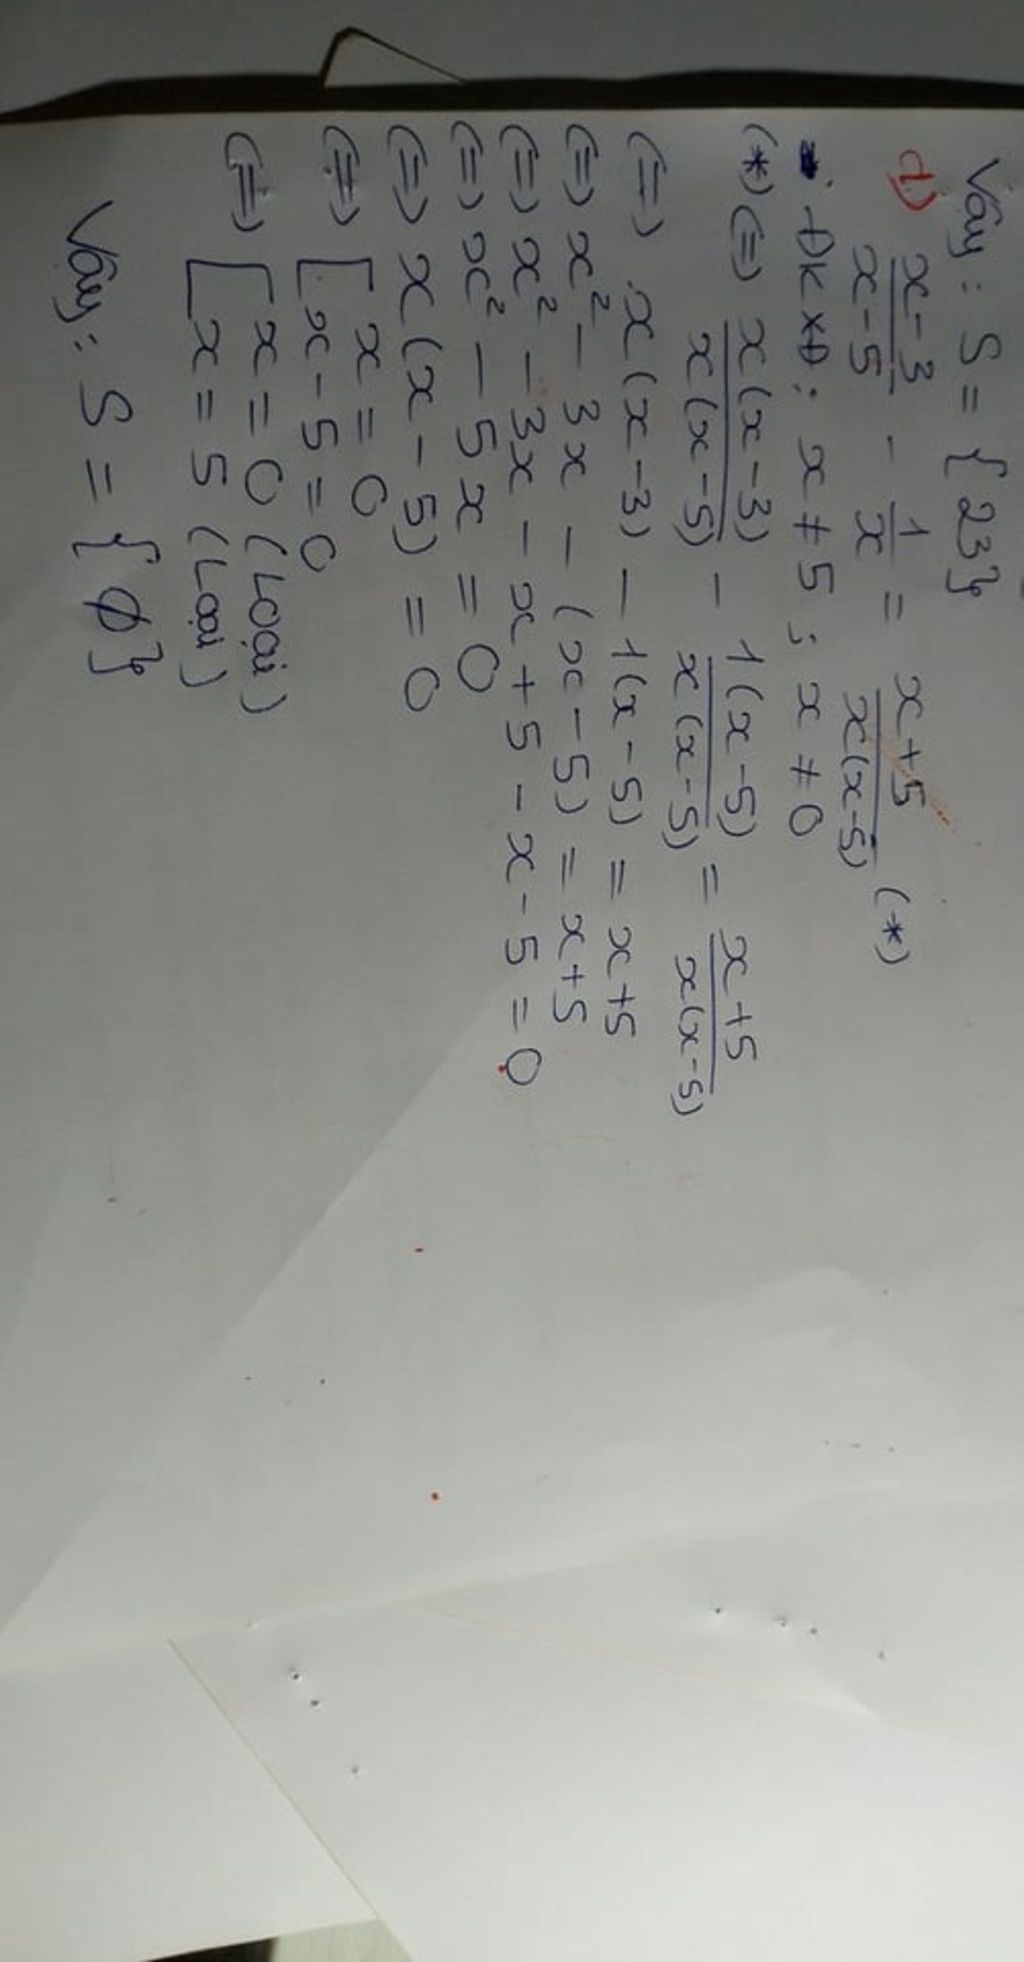 Vậy: S = {23}
d) (x-3)/(x-5) - 1/x = (x+5)/(x(x-5)) (*)
- ĐKXĐ: x ≠ 5 ; x ≠ 0
(*) (=) x(x-3)/(x(x-5)) - 1(x-5)/(x(x-5)) = (x+5)/(x(x-5))
(=) x(x-3) - 1(x-5) = x+5
(=) x² - 3x - (x-5) = x+5
(=) x² - 3x - x + 5 - x - 5 = 0
(=) x² - 5x = 0
(=) x(x-5) = 0
(=) [ x = 0
x - 5 = 0
(=) [ x = 0 (Loại)
x = 5 (Loại)
Vậy: S = {Ø}